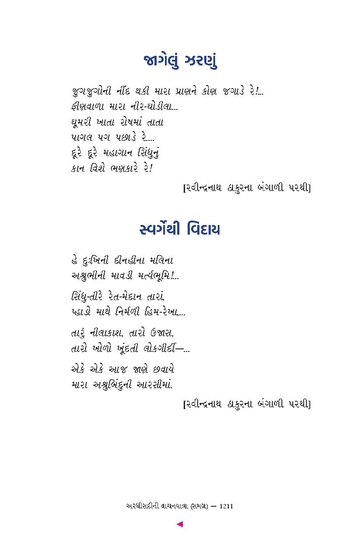 જાગેલું ઝરણું
જુગજુગોની નીંદ થકી મારા પ્રાણને કોણ જગાડે રે!...
ફીણવાળા મારા નીર-ઘોડીલા...
ઘૂમરી ખાતા રોષમાં તાતા
પાગલ પગ પછાડે રે....
દૂરે દૂરે મહાગાન સિંધુનું
કાન વિશે ભણકારે રે!
[રવીન્દ્રનાથ ઠાકુરના બંગાળી પરથી]
સ્વર્ગેથી વિદાય
હે દુઃખિની દીનહીના મલિના
અશ્રુભીની માવડી મર્ત્યભૂમિ!...
સિંધુ-તીરે રેત-મેદાન તારાં,
પ્હાડો માથે નિર્મળી હિમ-રેખા,...
તારું નીલાકાશ, તારો ઉજાસ,
તારો ખોળો ખૂંદતી લોકગીર્દી—...
એકે એકે આજ જાણે છવાયે
મારા અશ્રુબિંદુની આરસીમાં.
[રવીન્દ્રનાથ ઠાકુરના બંગાળી પરથી]
અરધીસદીની વાચનયાત્રા (સમગ્ર) — 1211